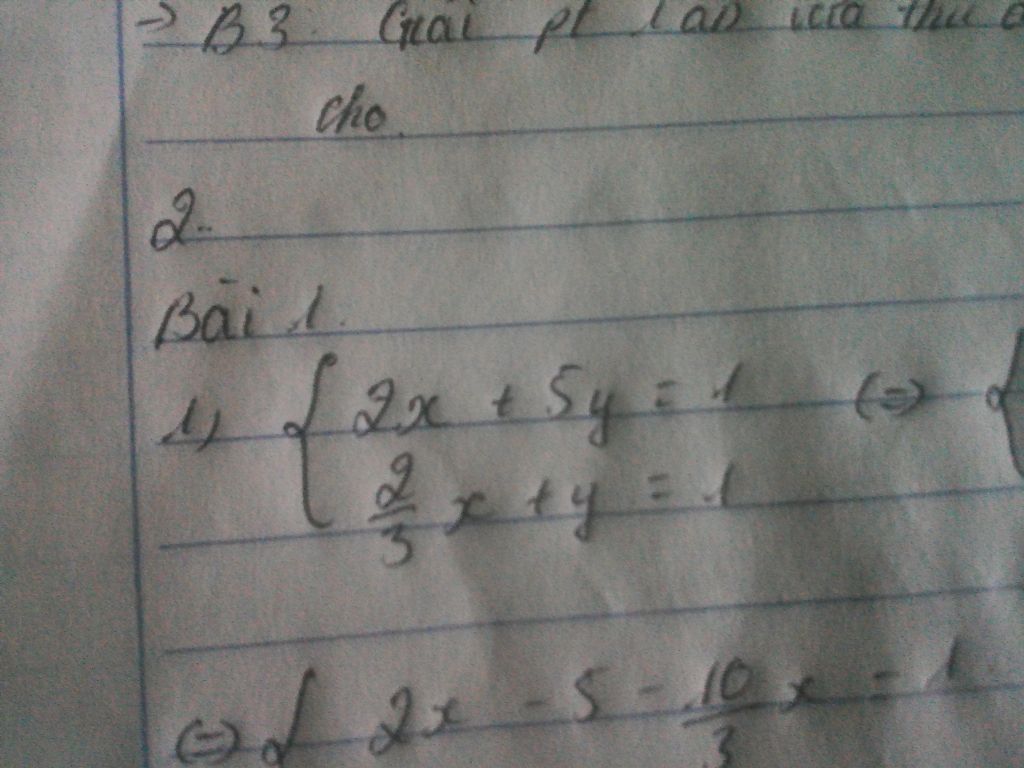 → B3. Giải pt
cho.
2.
Bài 1.
1) { 2x + 5y = 1 (=) {
2/3 x + y = 1
(=) { 2x - 5 - 10/3 x = 1